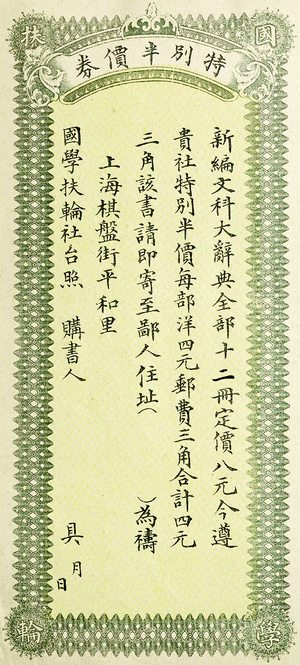 國學扶輪
特別半價券
新編文科大辭典全部十二冊定價八元今遵
貴社特別半價每部洋四元郵費三角合計四元
三角該書請即寄至鄙人住址（　　）為禱
上海棋盤街平和里
國學扶輪社台照　購書人
具　月　日